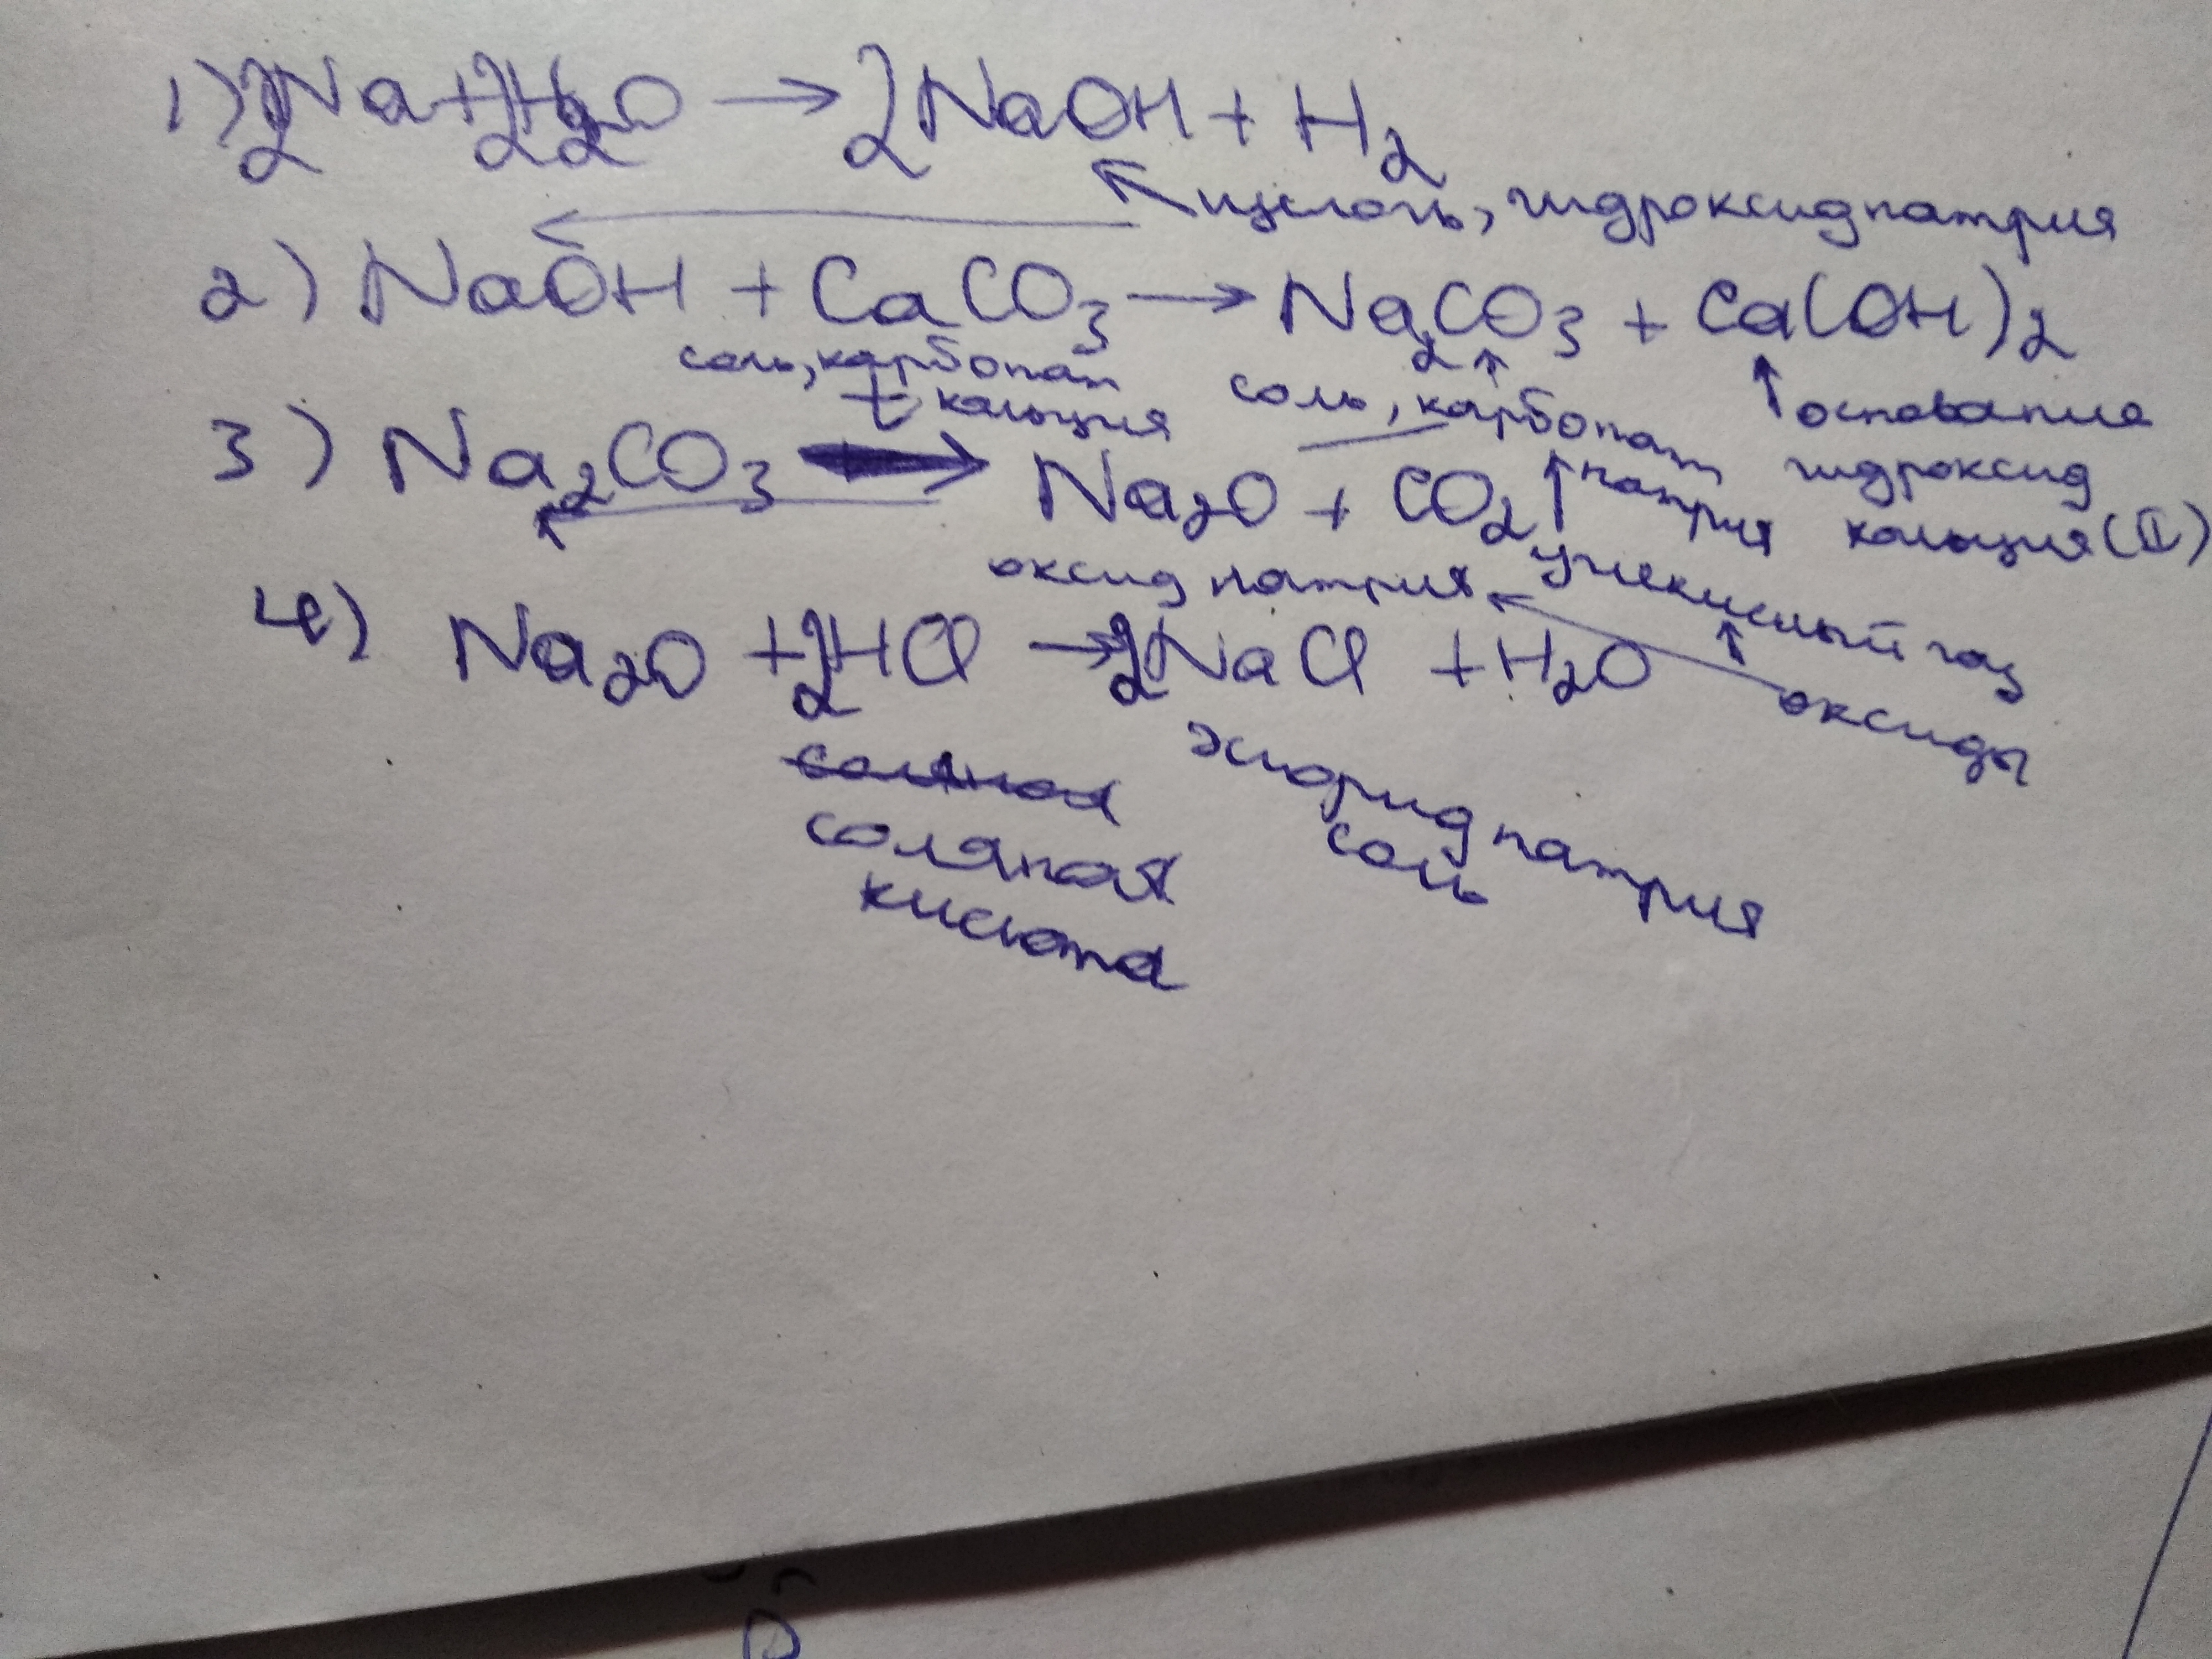 1) 2Na + 2H₂O → 2NaOH + H₂
щелочь, гидроксид натрия
2) NaOH + CaCO₃ → Na₂CO₃ + Ca(OH)₂
соль, карбонат кальция
соль, карбонат натрия
основание гидроксид кальция (II)
3) Na₂CO₃ t→ Na₂O + CO₂
оксид натрия
углекислый газ
оксиды
4) Na₂O + 2HCl → 2NaCl + H₂O
соляная
соляная
кислота
хлорид натрия
соль